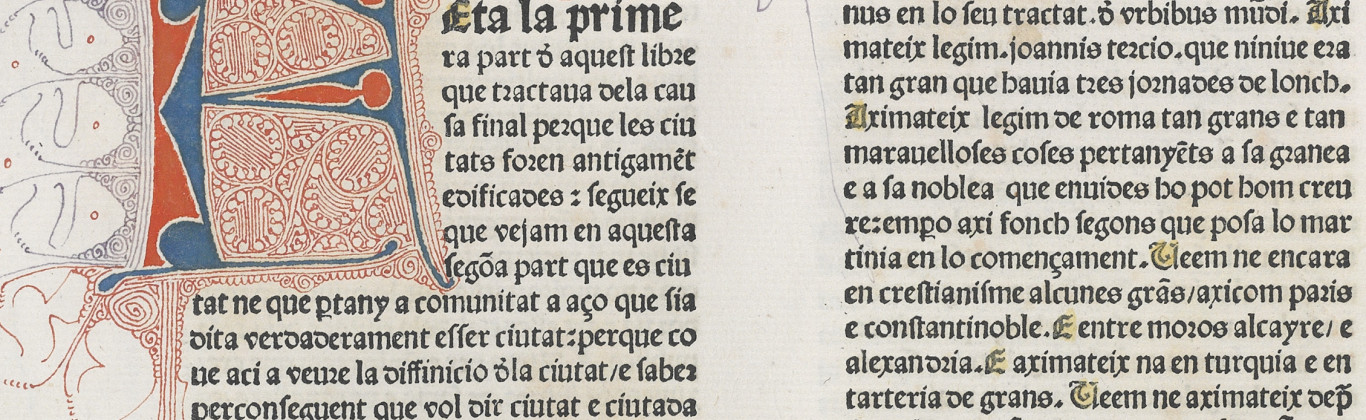 Eta la prime
ra part đ aqueſt libre
que tractaua dela cau
ſa final perque les ciu
tats foren antigamēt
edificades : ſegueix ſe
que vejam en aqueſta
ſegōa part que es ciu
tat ne que ꝑtany a comunitat a aço que ſia
dita verdaderament eſſer ciutat:perque co
ue aci a veure la diffinicio đla ciutat/e ſaber
perconſeguent que vol dir ciutat e ciutada
nus en lo ſeu tractat.đ vrbibus mūdi. Axi
mateix legim.joannis tercio.que niniue era
tan gran que hauia tres jornades de lonch.
Aximateix legim de roma tan grans e tan
marauelloſes coſes pertanyēts a ſa granea
e a ſa noblea que enuides ho pot hom creu
re:empo axi fonch ſegons que poſa lo mar
tinia en lo començament. Ueem ne encara
en creſtianiſme alcunes grās/axicom paris
e conſtantinoble. E entre moros alcayre/ e
alexandria. E aximateix na en turquia e en
tarteria de grans. Ueem ne aximateix deꝑ